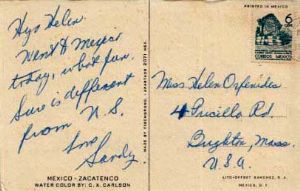 Hya Helen
Went to Mexico
today, what fun.
Sure is different
from U.S.
Love
Sandy
MEXICO - ZACATENCO
WATER COLOR BY: C. X. CARLSON
MADE BY FISCHGRUND. - APARTADO 2071 MEX.
PRINTED IN MEXICO
6
CORREOS MEXICO
Miss Helen
4 Priscilla Rd.
Brighton, Mass.
U.S.A.
LITO-OFFSET SANCHEZ, S. A.
MEXICO, D. F.